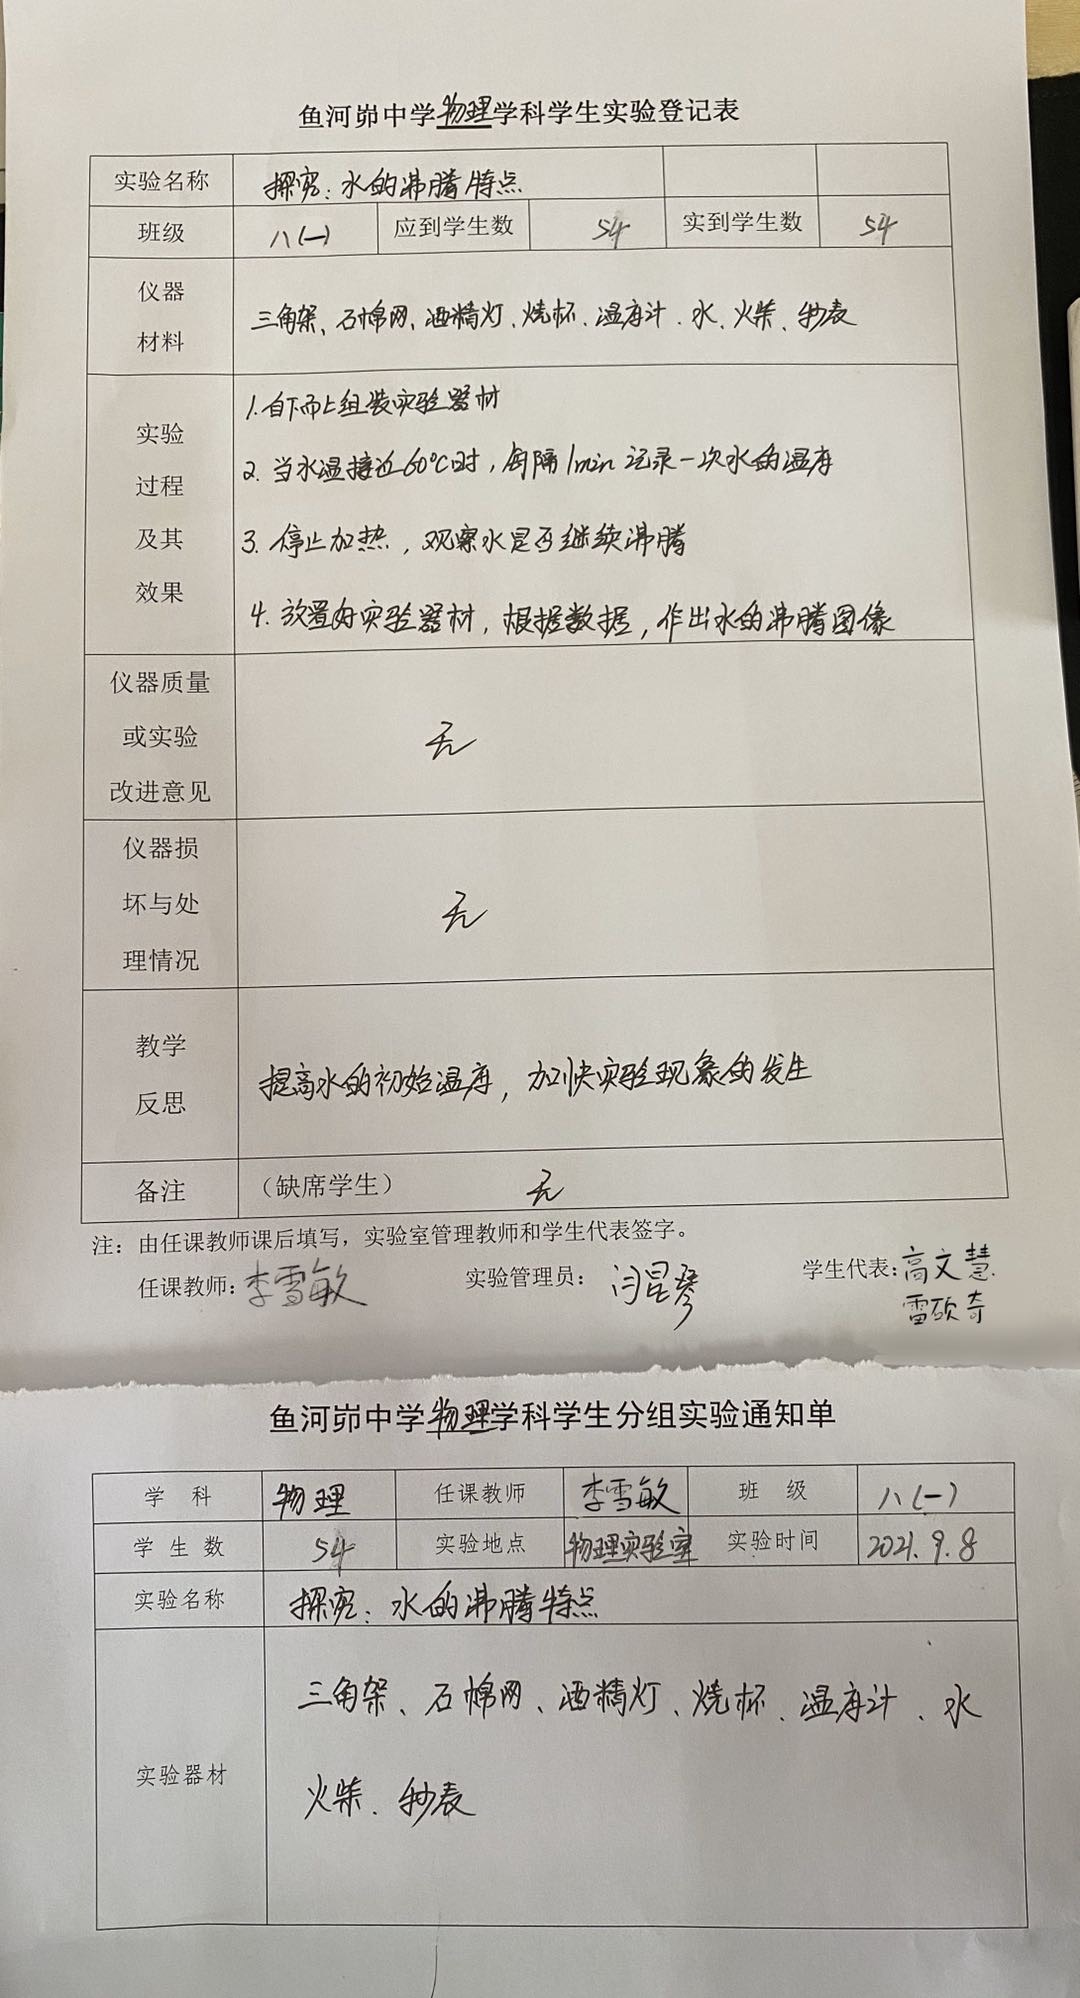 鱼河峁中学物理学科学生实验登记表
实验名称 探究:水的沸腾特点
班级 八(一) 应到学生数 54 实到学生数 54
仪器
材料
三角架、石棉网、酒精灯、烧杯、温度计、水、火柴、秒表
实验
过程
及其
效果
1.自下而上组装实验器材
2.当水温接近60℃时,每隔1min记录一次水的温度
3.停止加热,观察水是否继续沸腾
4.放置好实验器材,根据数据,作出水的沸腾图像
仪器质量
或实验
改进意见
无
仪器损
坏与处
理情况
无
教学
反思
提高水的初始温度,加快实验现象的发生
备注 (缺席学生) 无
注:由任课教师课后填写,实验室管理教师和学生代表签字。
任课教师:李雪敏 实验管理员:闫昆琴 学生代表:高文慧
雷硕奇
鱼河峁中学物理学科学生分组实验通知单
学 科 物理 任课教师 李雪敏 班 级 八(一)
学 生 数 54 实验地点 物理实验室 实验时间 2021.9.8
实验名称 探究:水的沸腾特点
实验器材
三角架、石棉网、酒精灯、烧杯、温度计、水
火柴、秒表